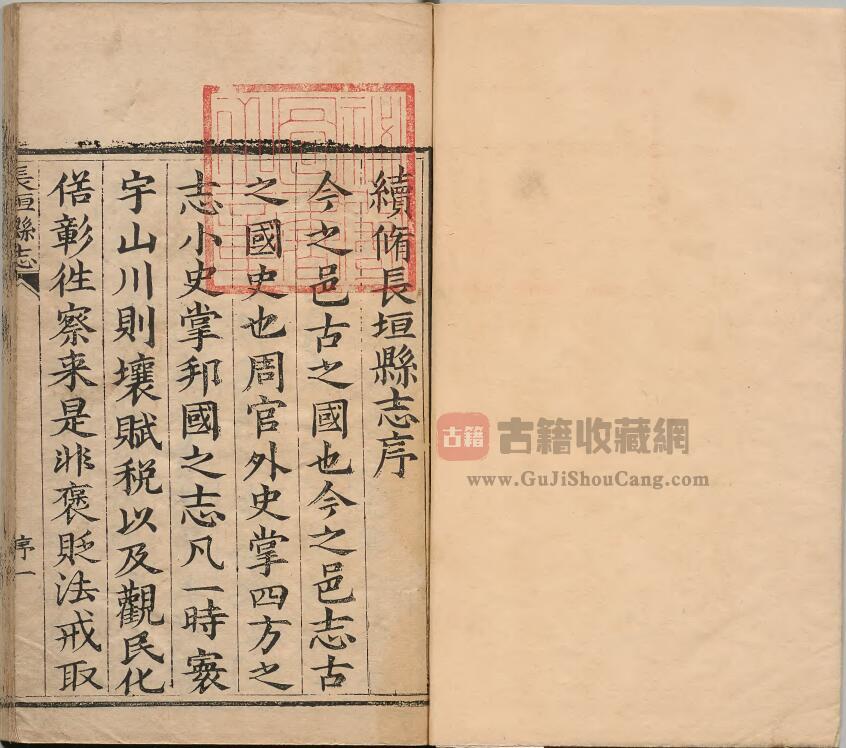 續脩長垣縣志序
今之邑古之國也今之邑志古
之國史也周官外史掌四方之
志小史掌邦國之志凡一時寰
宇山川則壤賦税以及觀民化
俗彰徃察来是非褒貶法戒取
長垣縣志
序一
古籍
古籍收藏網
www.GuJiShouCang.com